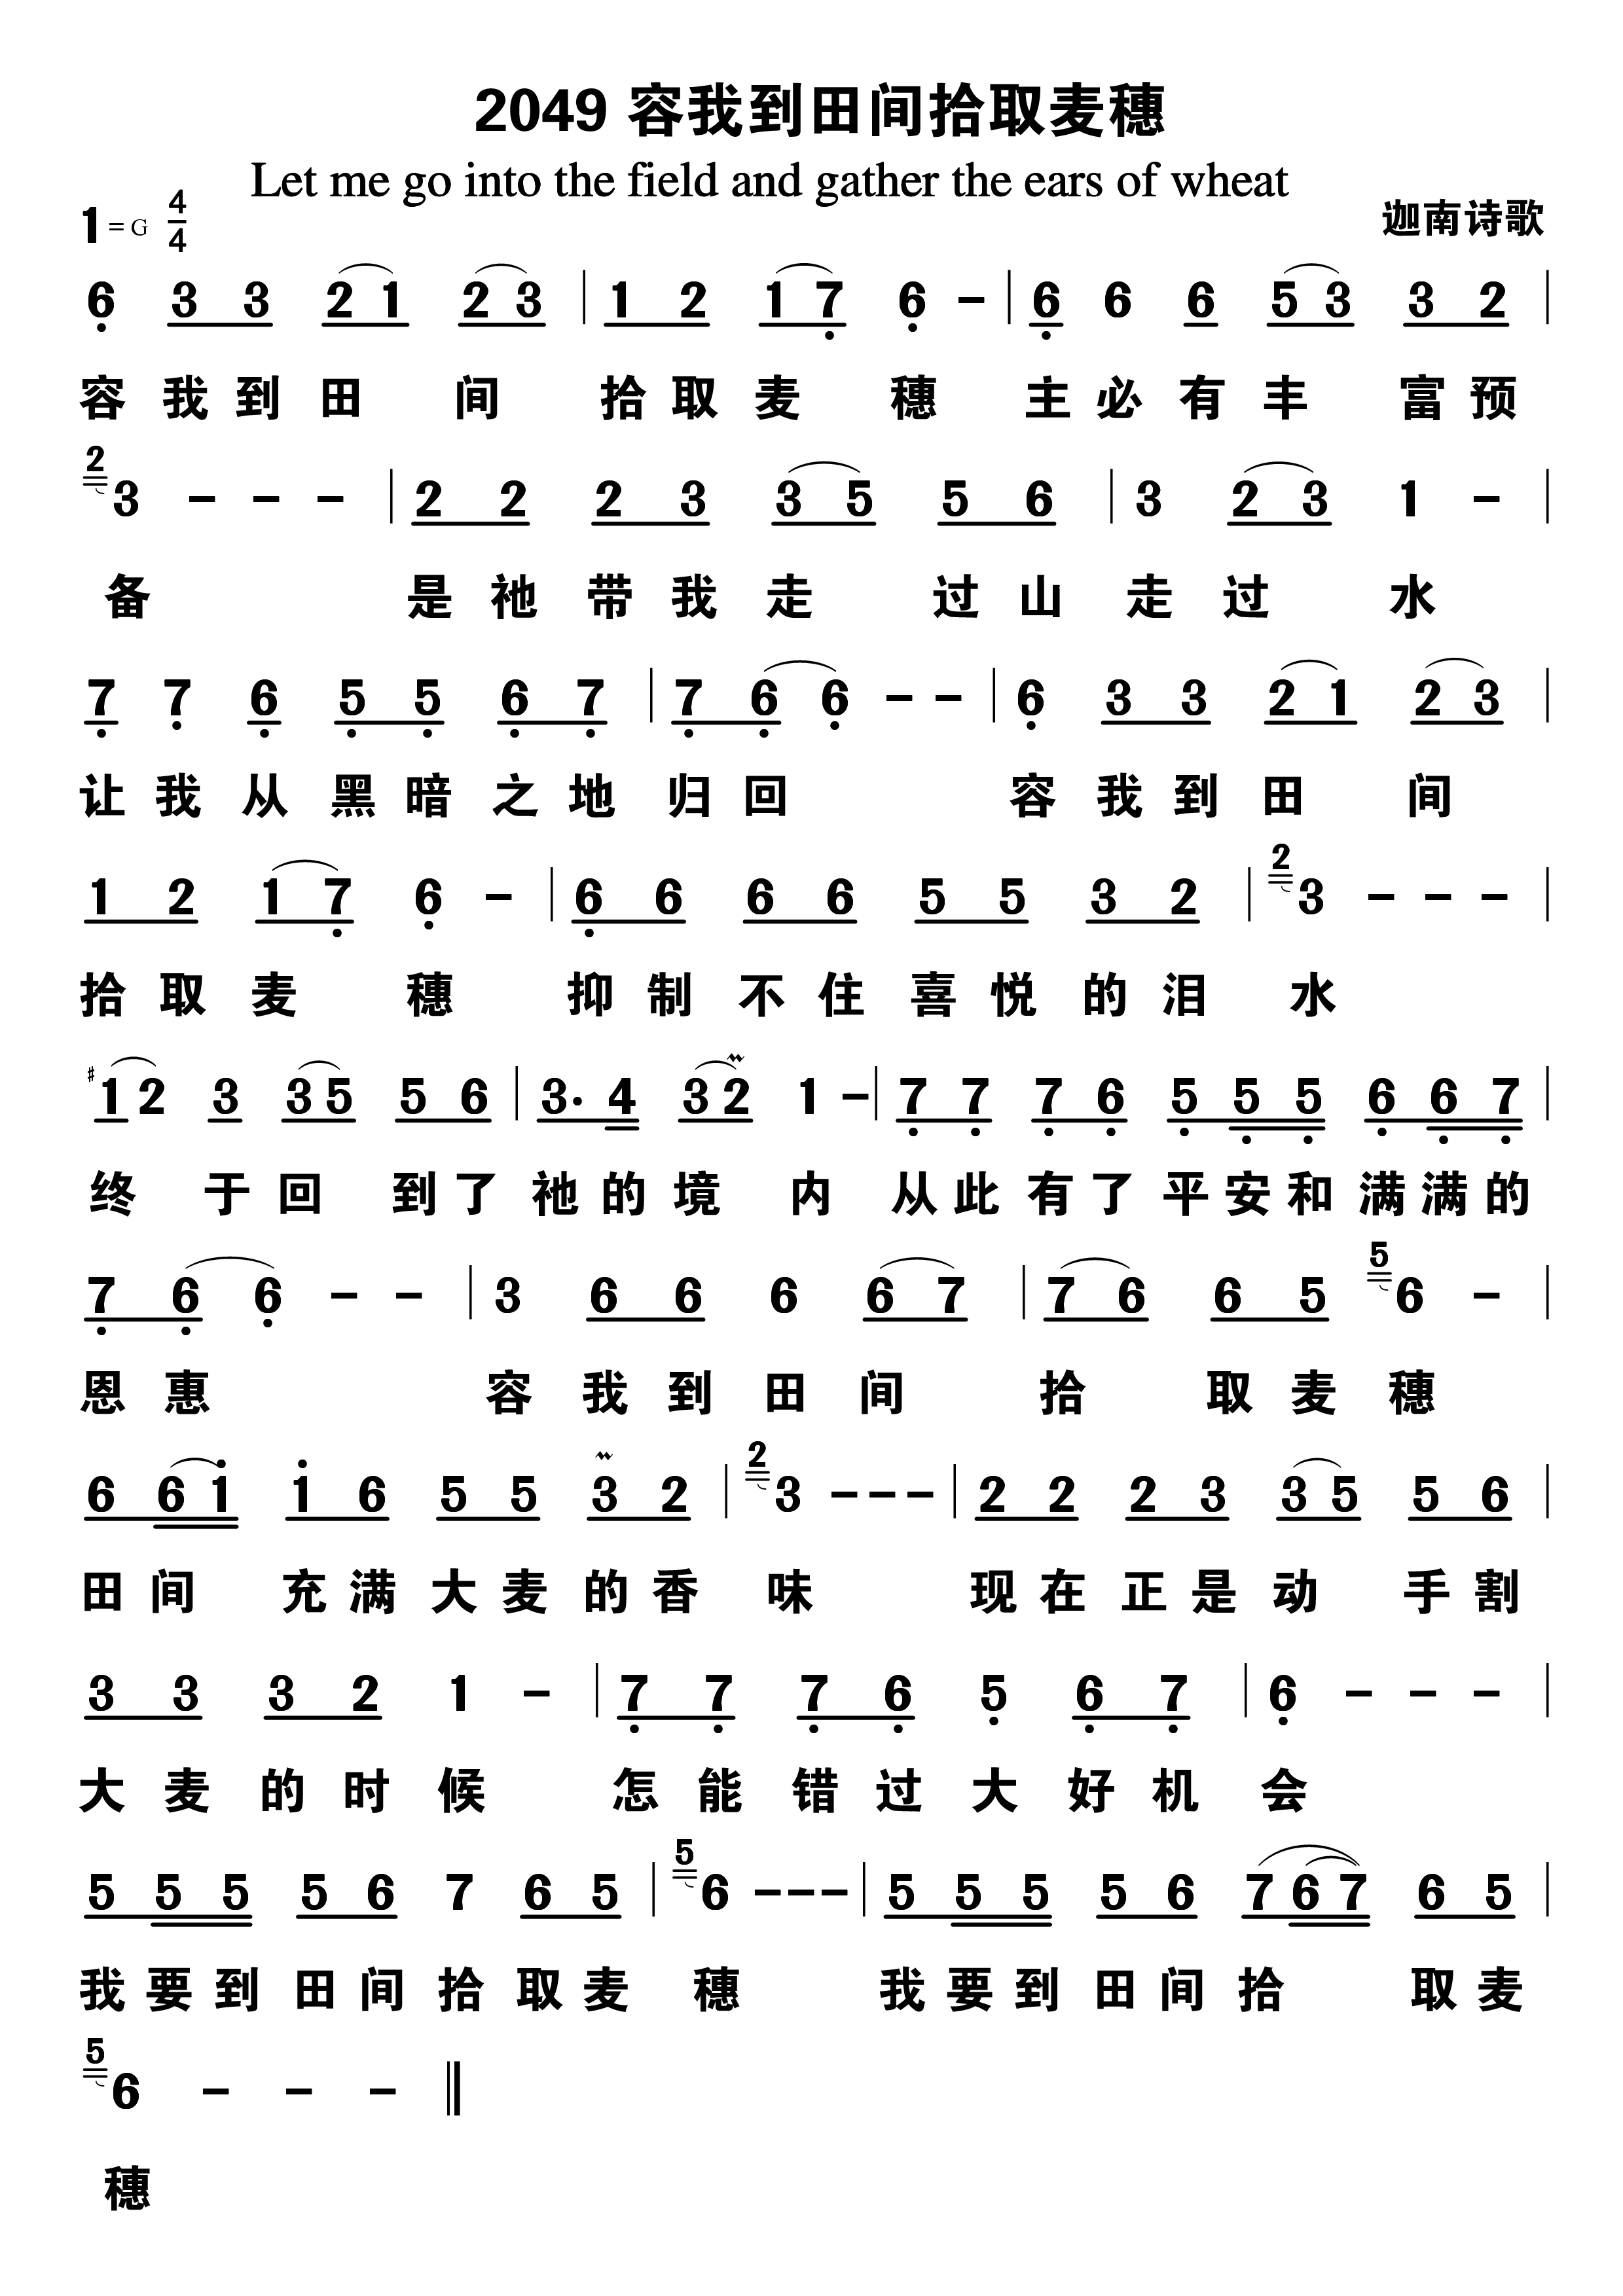 2049 容我到田间拾取麦穗
Let me go into the field and gather the ears of wheat
1=G 4/4
迦南诗歌
6 3 3 2 1 2 3 | 1 2 1 7 6 – | 6 6 6 5 3 3 2 |
容我到田间拾取麦穗主必有丰富预
2 3 – – – | 2 2 2 3 3 5 5 6 | 3 2 3 1 – |
备是祂带我走过山走过水
7 7 6 5 5 6 7 | 7 6 6 – – | 6 3 3 2 1 2 3 |
让我从黑暗之地归回容我到田间
1 2 1 7 6 – | 6 6 6 6 5 5 3 2 | 2 3 – – – |
拾取麦穗抑制不住喜悦的泪水
♯1 2 3 3 5 5 6 | 3· 4 3 2 1 – | 7 7 7 6 5 5 5 6 6 7 |
终于回到了祂的境内从此有了平安和满满的
7 6 6 – – | 3 6 6 6 6 7 | 7 6 6 5 5 6 – |
恩惠容我到田间拾取麦穗
6 6 1 1 6 5 5 3 2 | 2 3 – – – | 2 2 2 3 3 5 5 6 |
田间充满大麦的香味现在正是动手割
3 3 3 2 1 – | 7 7 7 6 5 6 7 | 6 – – – |
大麦的时候怎能错过大好机会
5 5 5 5 6 7 6 5 | 5 6 – – – | 5 5 5 5 6 7 6 7 6 5 |
我要到田间拾取麦穗我要到田间拾取麦
5 6 – – – ‖
穗